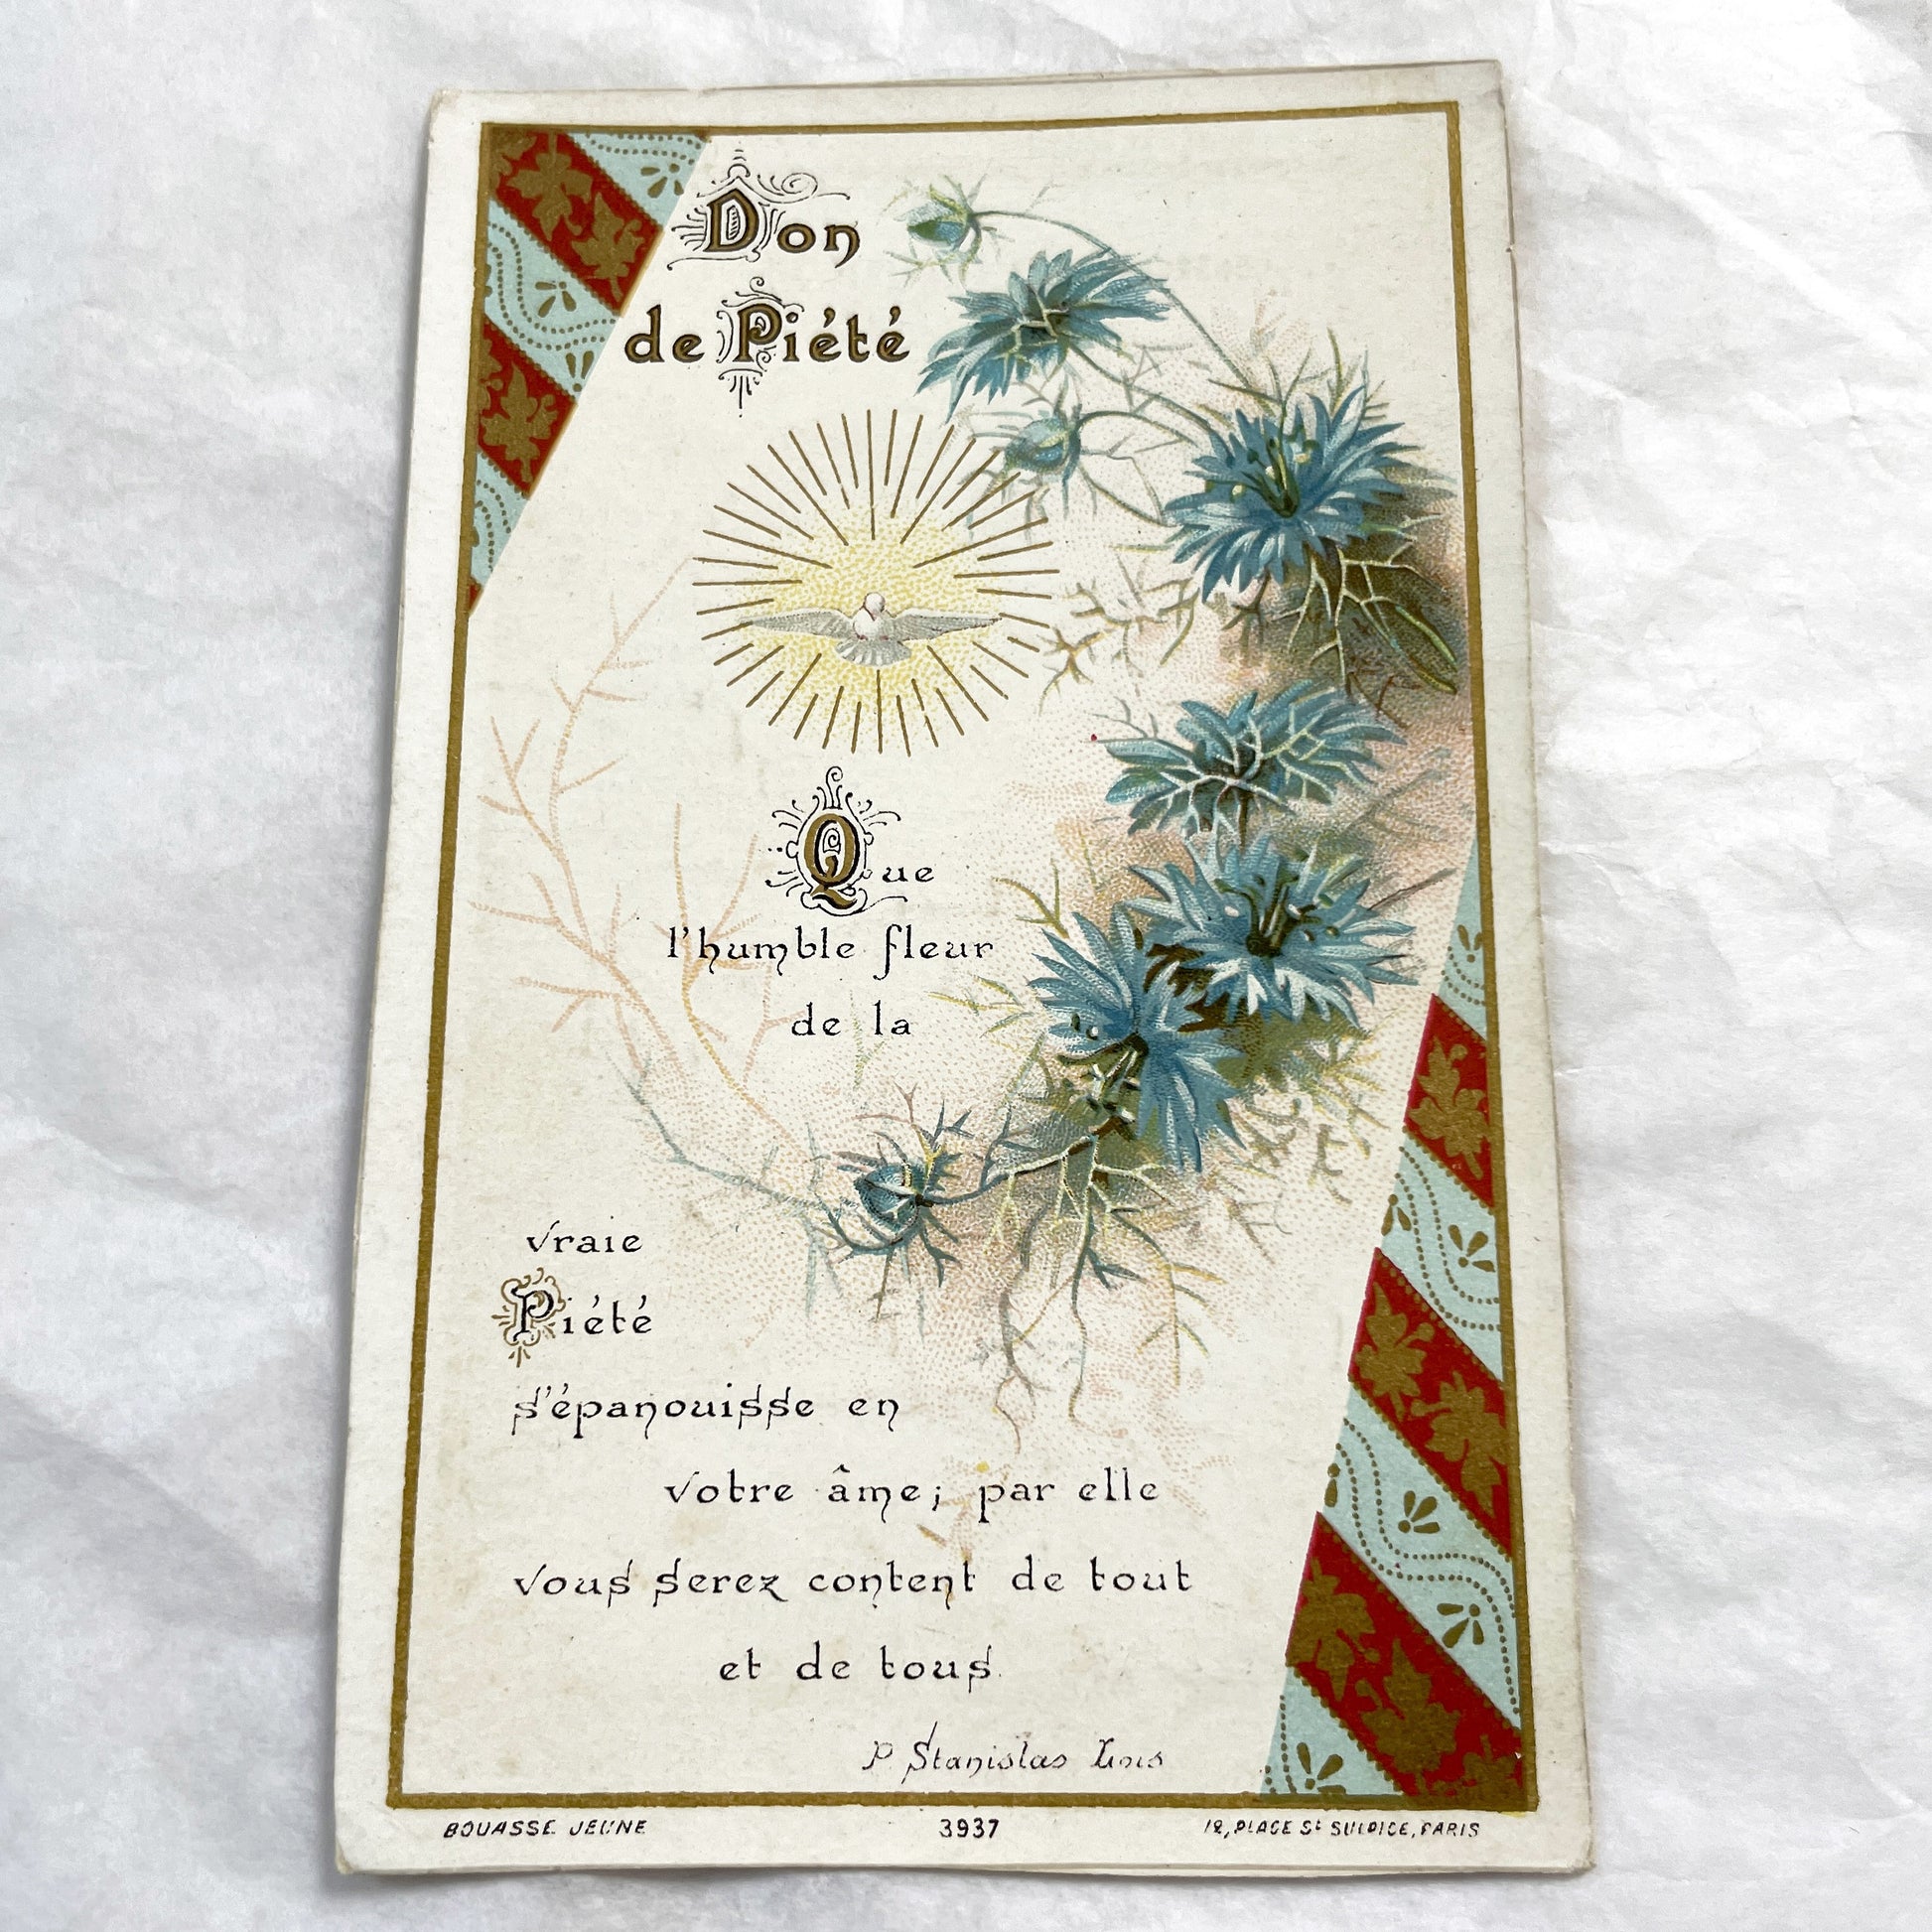 Don
de Piété
Que
l'humble fleur
de la
vraie
Piété
s'épanouisse en
votre âme; par elle
vous serez content de tout
et de tous.
P. Stanislas
BOUASSE JEUNE 3937 12, PLACE St SULPICE, PARIS